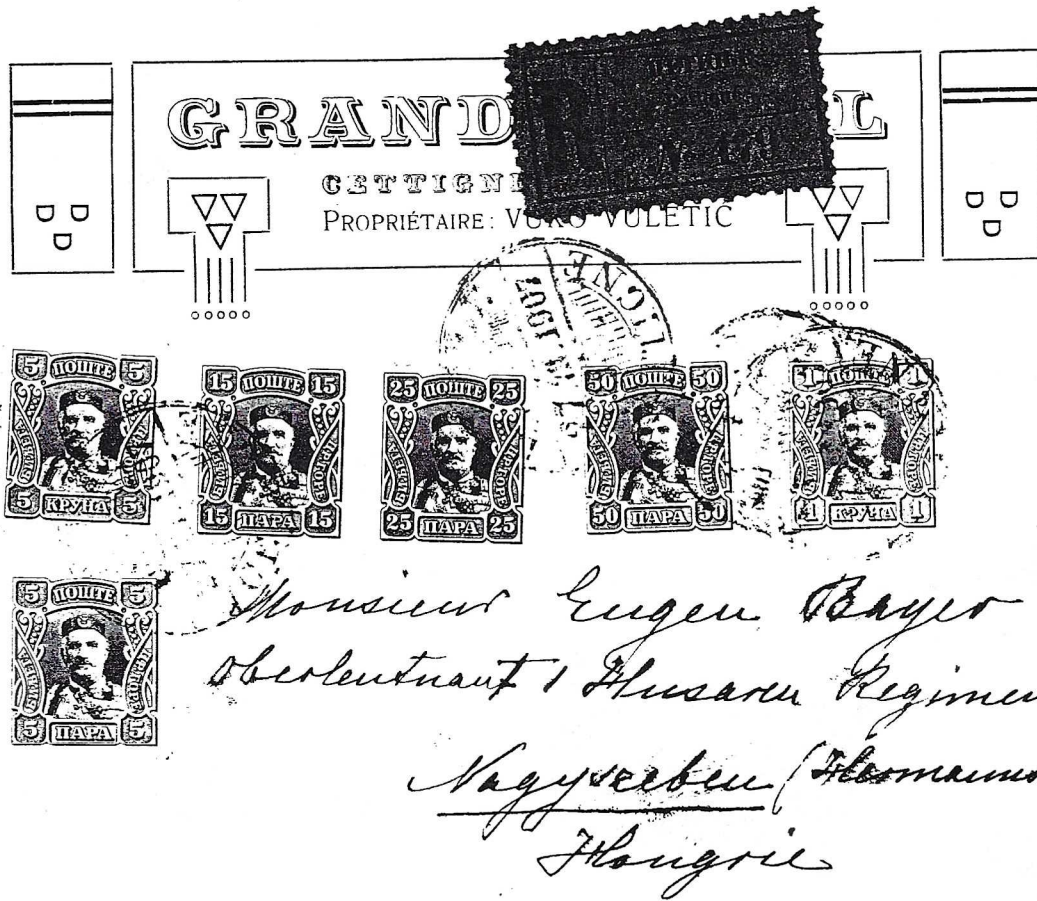 GRAND L
CETTIGN
PROPRIÉTAIRE: VUKO VULETIC
TIGNE
1907
5 ПОШТЕ 5
5 КРУНА 5
15 ПОШТЕ 15
15 ПАРА 15
25 ПОШТЕ 25
25 ПАРА 25
50 ПОШТЕ 50
50 ПАРА 50
1 ПОШТЕ 1
1 КРУНА 1
5 ПОШТЕ 5
5 ПАРА 5
Monsieur Eugen Bayer
Oberleutnant 1 Husaren Regimen
Nagyszeben (Hermanns
Hongrie